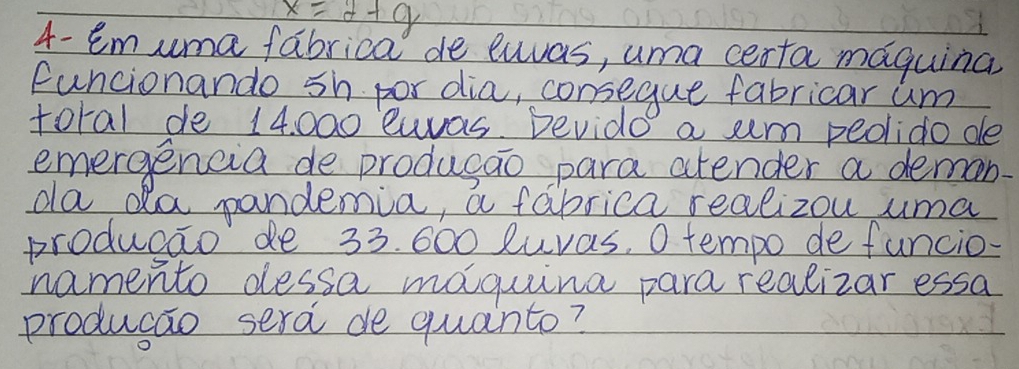 x = 2 + g
4- Em uma fábrica de luvas, uma certa máquina
funcionando 5h por dia, consegue fabricar um
total de 14.000 luvas. Devido a um pedido de
emergência de produção para atender a deman-
da da pandemia, a fábrica realizou uma
produção de 33.600 luvas. O tempo de funcio-
namento dessa máquina para realizar essa
produção será de quanto?